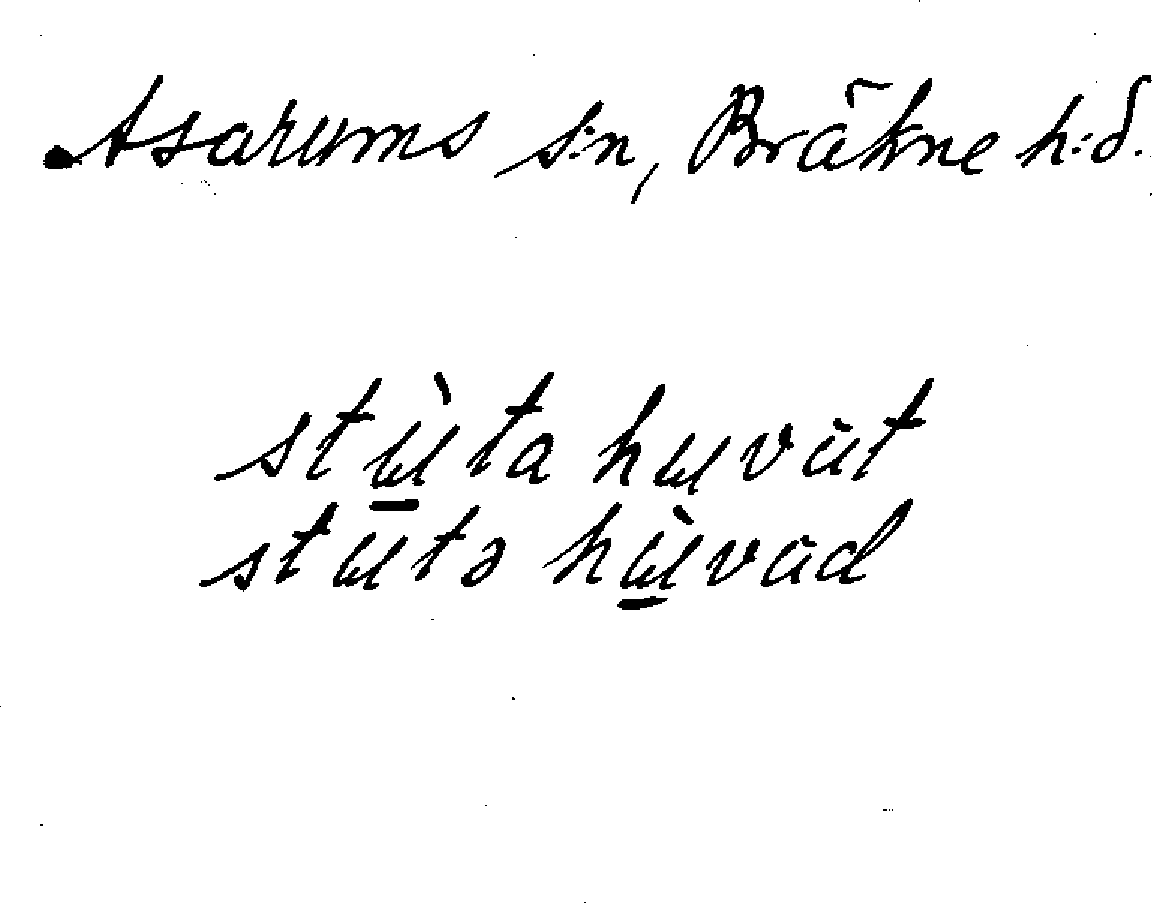 Asarums s:n, Bräkne h:d.
stɯ̲̀ta hɯvüt
stɯtə hɯ̲̀vüd